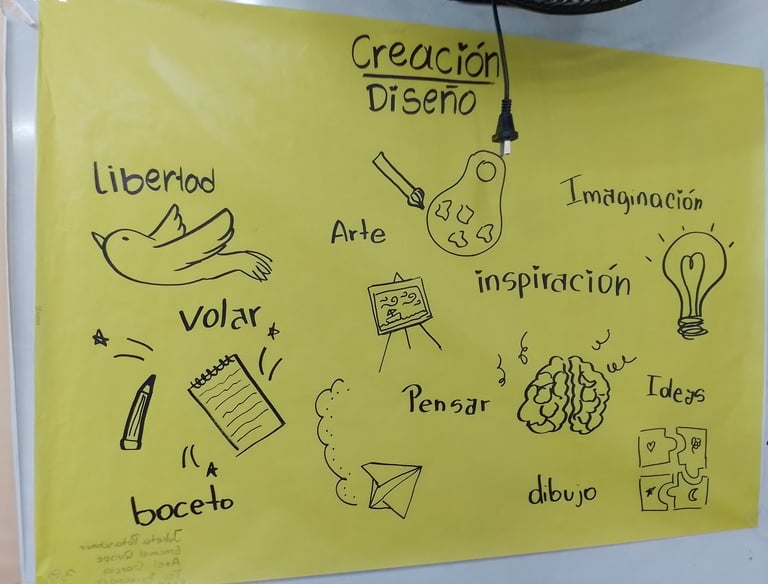 Creación
Diseño
libertad
Imaginación
Arte
inspiración
volar
Pensar
Ideas
boceto
dibujo